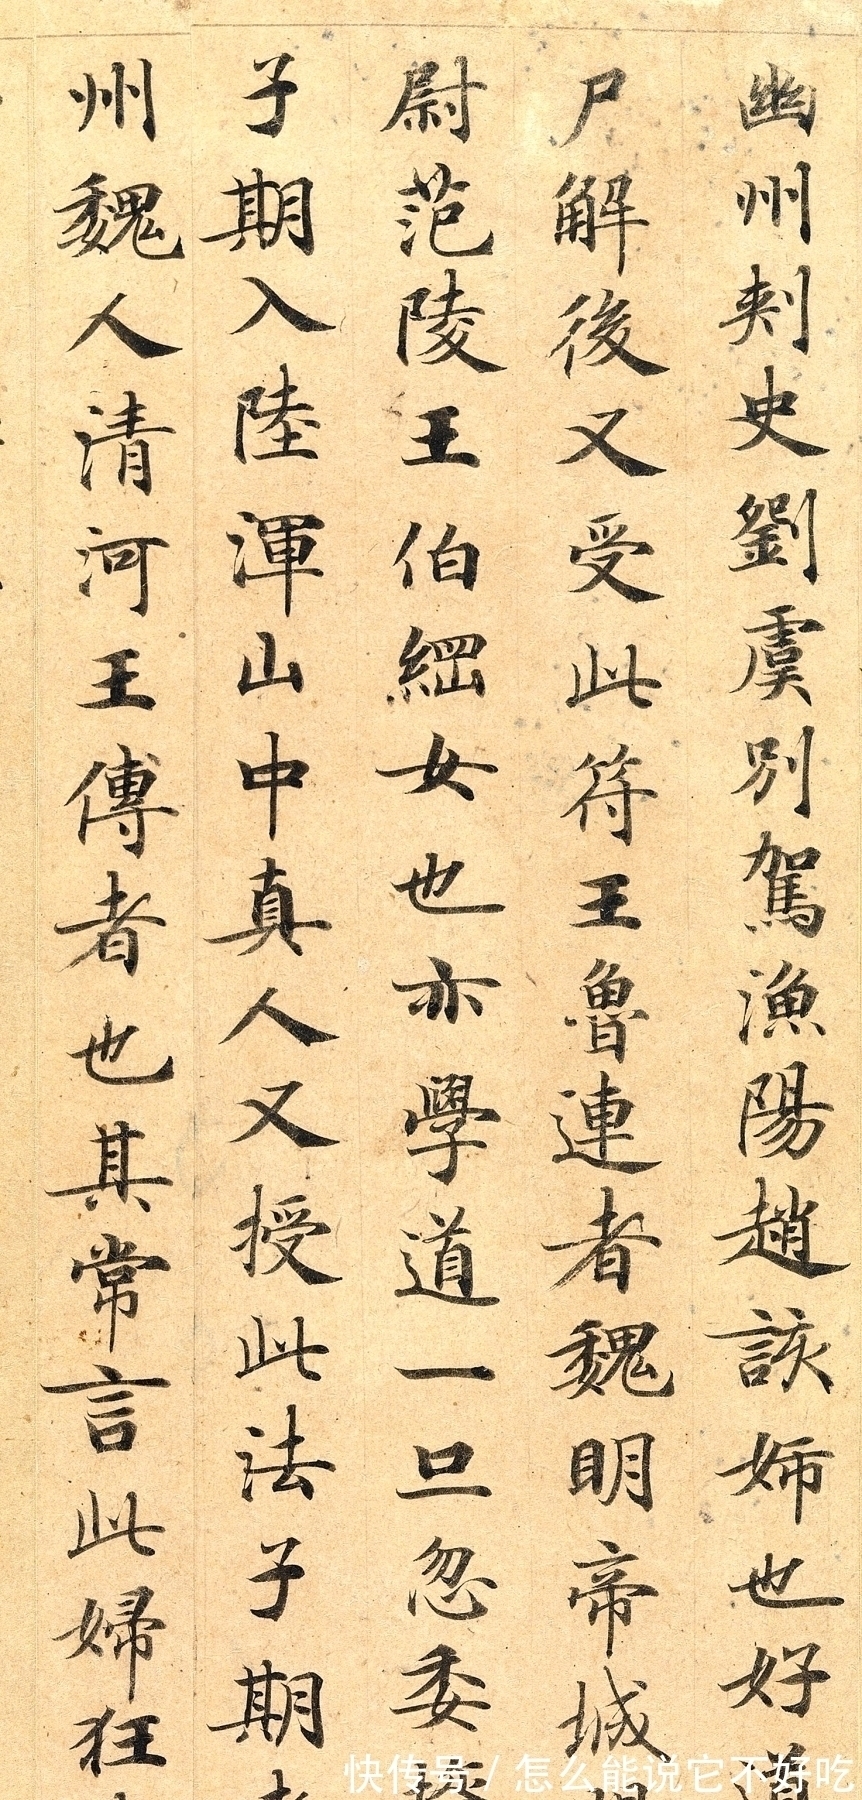 幽州刺史劉虞別駕漁陽趙該姉也好道
尸解後又受此符王魯連者魏明帝城
尉范陵王伯綱女也亦學道一旦忽委
子期入陸渾山中真人又授此法子期
州魏人清河王傅者也其常言此婦狂
快传号/怎么能说它不好吃